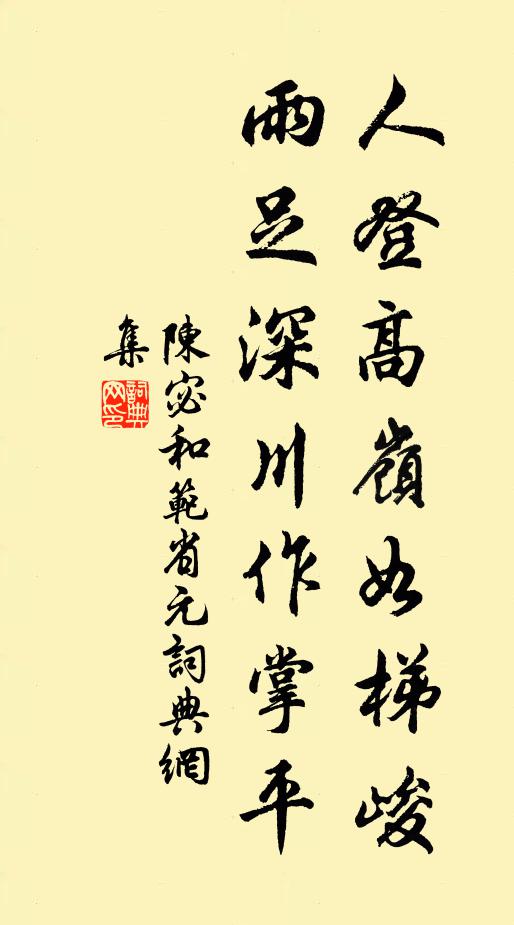 人登高嶺如梯峻
雨足深川作掌平
陳宓和範省元詞典網
集
詞典
网印